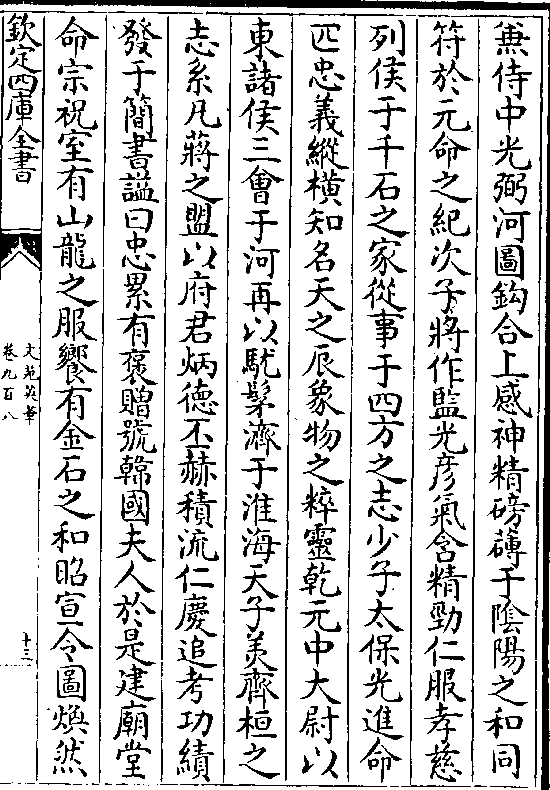 兼侍中光弼河圖鈎合上感神精磅礴于陰陽之和同
符於元命之紀次子將作監光彦氣含精勁仁服孝慈
列侯于千石之家從事于四方之志少子太保光進命
匹忠義縱横知名天之辰象物之粹靈乾元中大尉以
東諸侯三會于河再以駃騠濟于淮海天子美齊桓之
志系凡蔣之盟以府君炳德丕赫積流仁慶追考功績
發于簡書諡曰忠累有褒贈號韓國夫人於是建廟堂
命宗祝室有山龍之服饗有金石之和昭宣令圖煥然
欽定四庫全書
文苑英華
卷九百八
十三